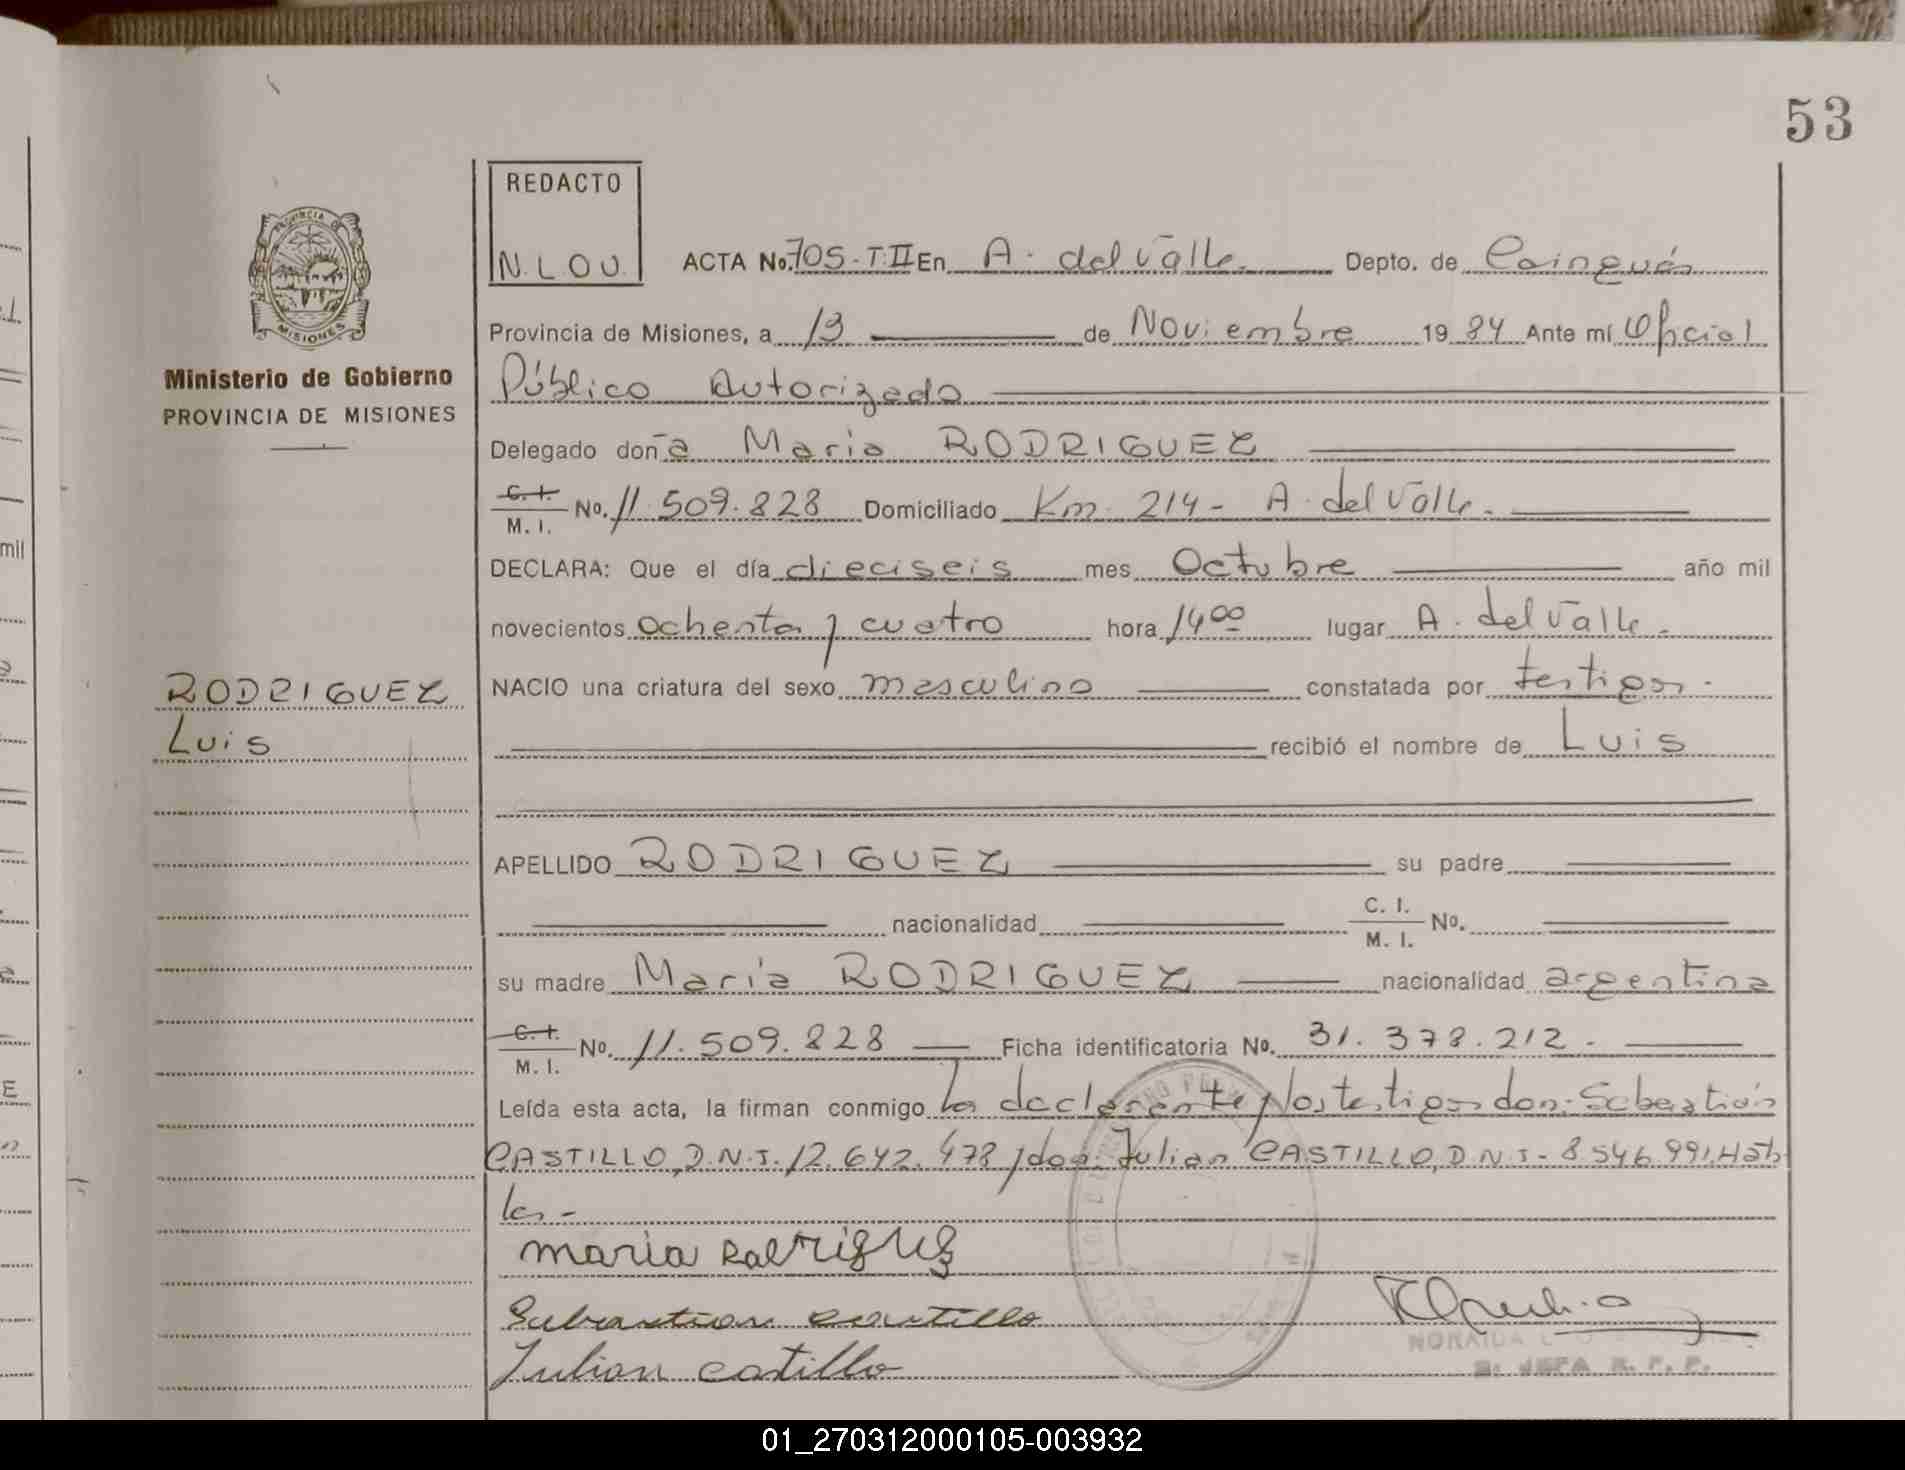 53
REDACTO
N.L.O.U.
PROVINCIA DE
MISIONES
Ministerio de Gobierno
PROVINCIA DE MISIONES
RODRIGUEZ
Luis
ACTA No. 705-T.II En A. del Valle. Depto. de Cainguás
Provincia de Misiones, a 13 de Noviembre 1984 Ante mí Oficial
Público Autorizado
Delegado doña Maria RODRIGUEZ
C. I. M. I. No. 11.509.828 Domiciliado Km. 214 - A. del Valle.
DECLARA: Que el día dieciseis mes Octubre año mil
novecientos ochenta y cuatro hora 14 00 lugar A. del Valle.
NACIO una criatura del sexo masculino constatada por testigos.
recibió el nombre de Luis
APELLIDO RODRIGUEZ su padre
nacionalidad C. I. M. I. No.
su madre María RODRIGUEZ nacionalidad argentina
C. I. M. I. No. 11.509.828 Ficha identificatoria No. 31.378.212.
Leída esta acta, la firman conmigo La declarante y los testigos don: Sebastián
CASTILLO, D.N.I. 12.642.478 y don: Julian CASTILLO, D.N.I- 8.546.991. Háb
les -
maria Rodriguez
Sebastian castillo
Julian castillo
NORAIDA
JEFA R. P. P.
01_270312000105-003932
mil
E